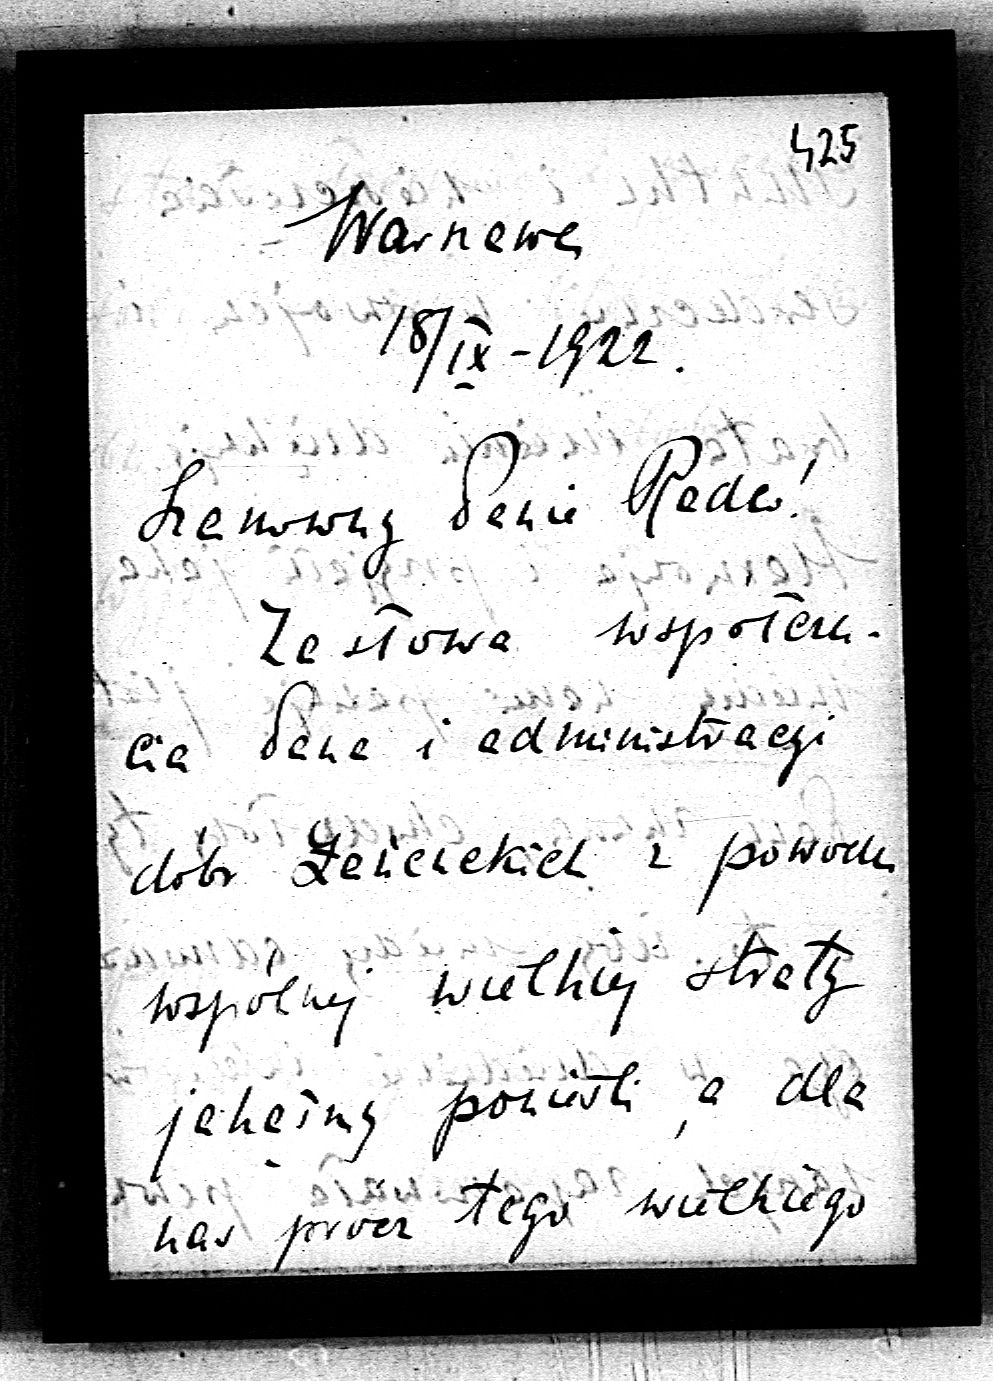 425
Warszawa
18/IX - 1922.
Szanowny Panie Radco!
Za słowa współczu-
cia Pana i administracji
dóbr Łańcuckich z powodu
wspólnej wielkiej straty
jakąśmy ponieśli, a dla
nas prócz tego wielkiego